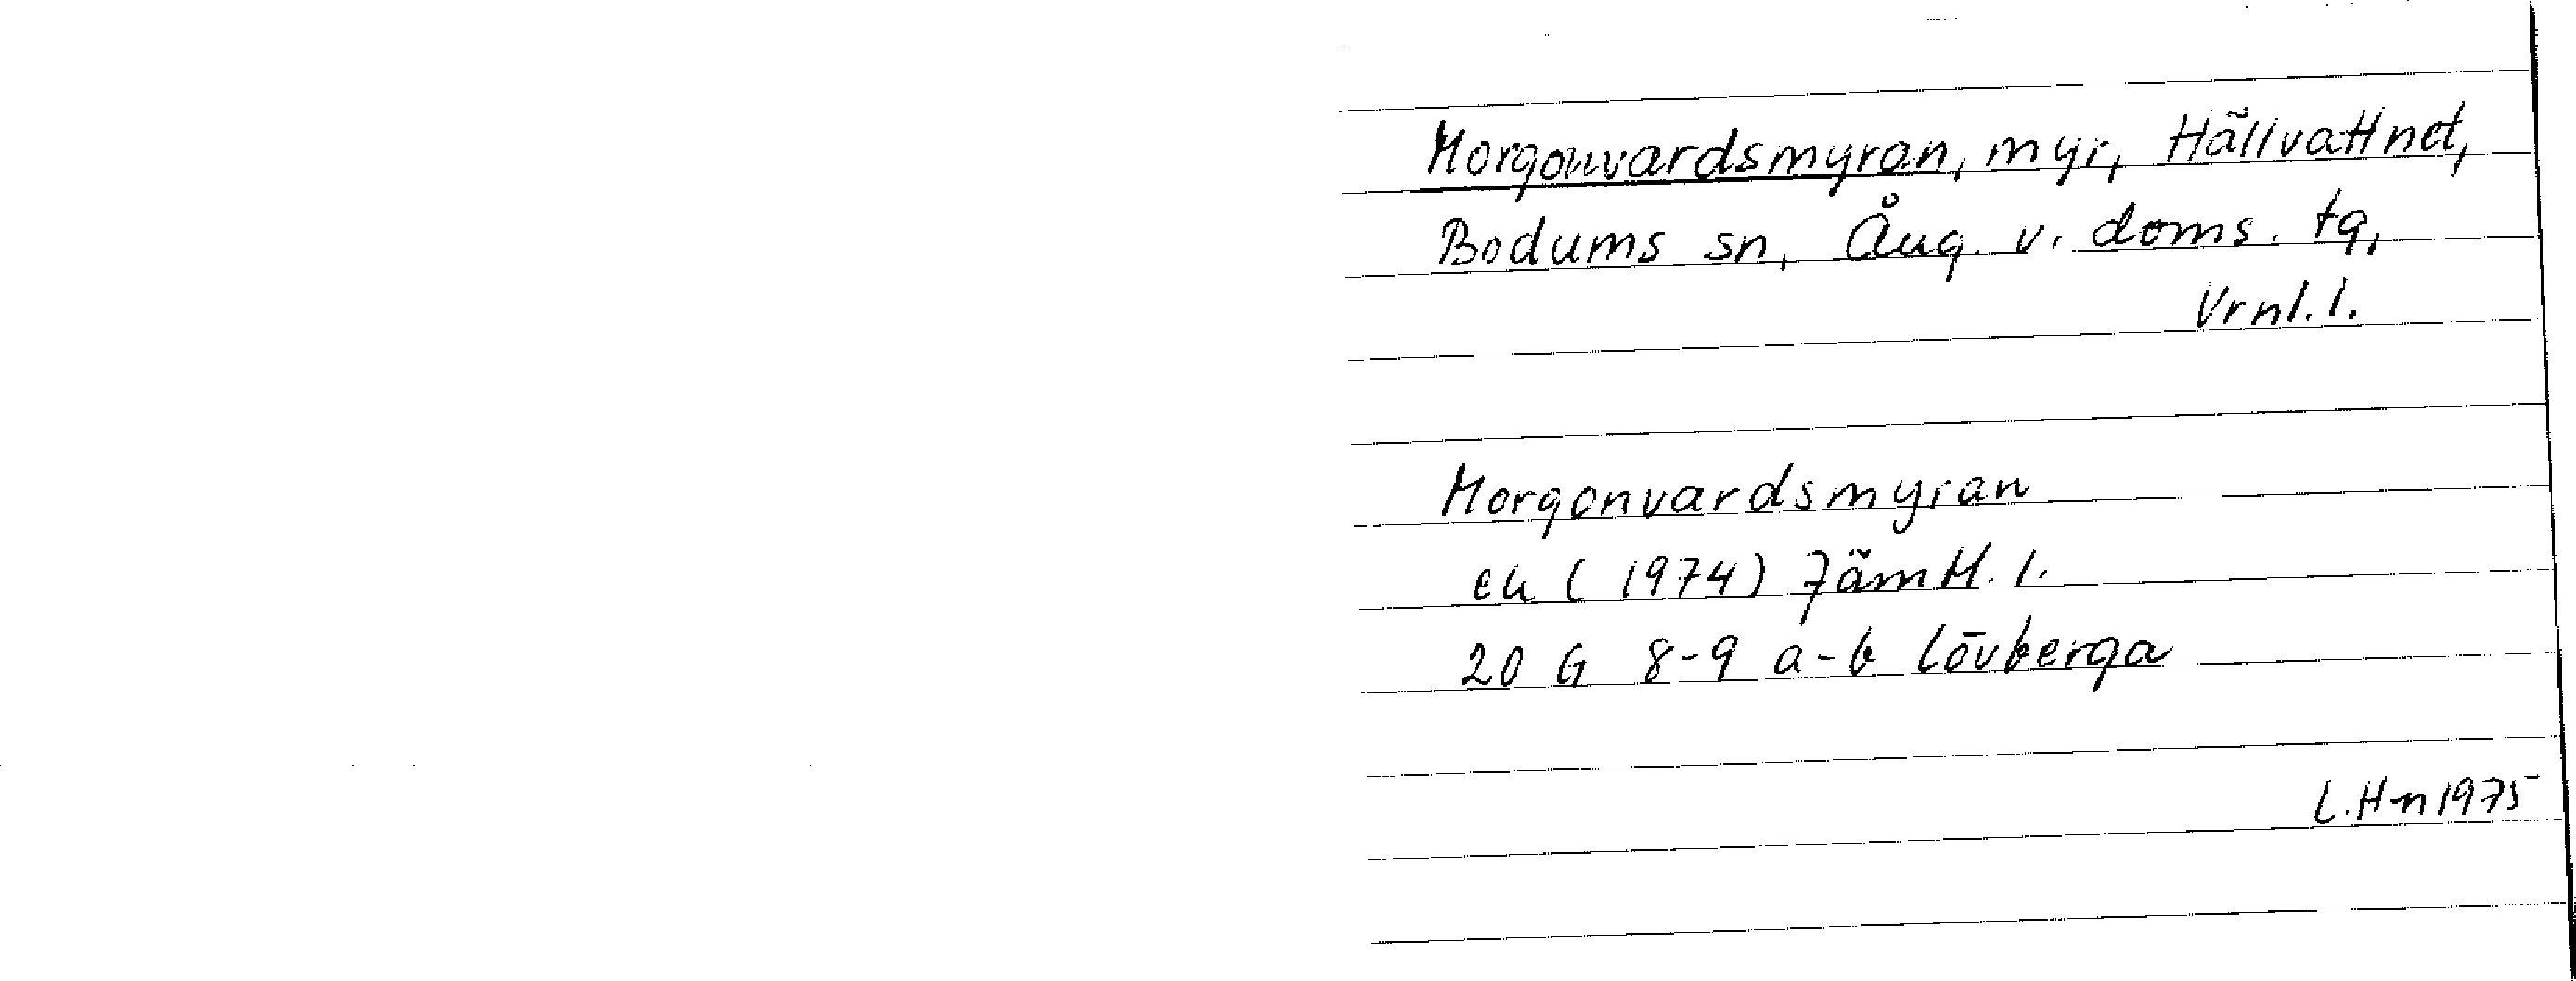 Morgonvardsmyran, myr, Hällvattnet,
Bodums sn, Ång. v. doms. tg,
Vrnl. l.
Morgonvardsmyran
ek (1974) Jämtl. l.
20 G 8-9 a-b Lövberga
L. H-n 1975